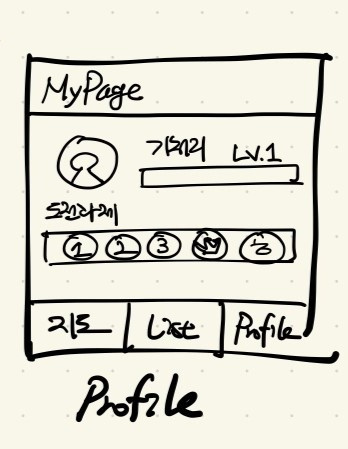 MyPage
기꺼리 Lv.1
도전과제
1 2 3
지도 List Profile
Profile